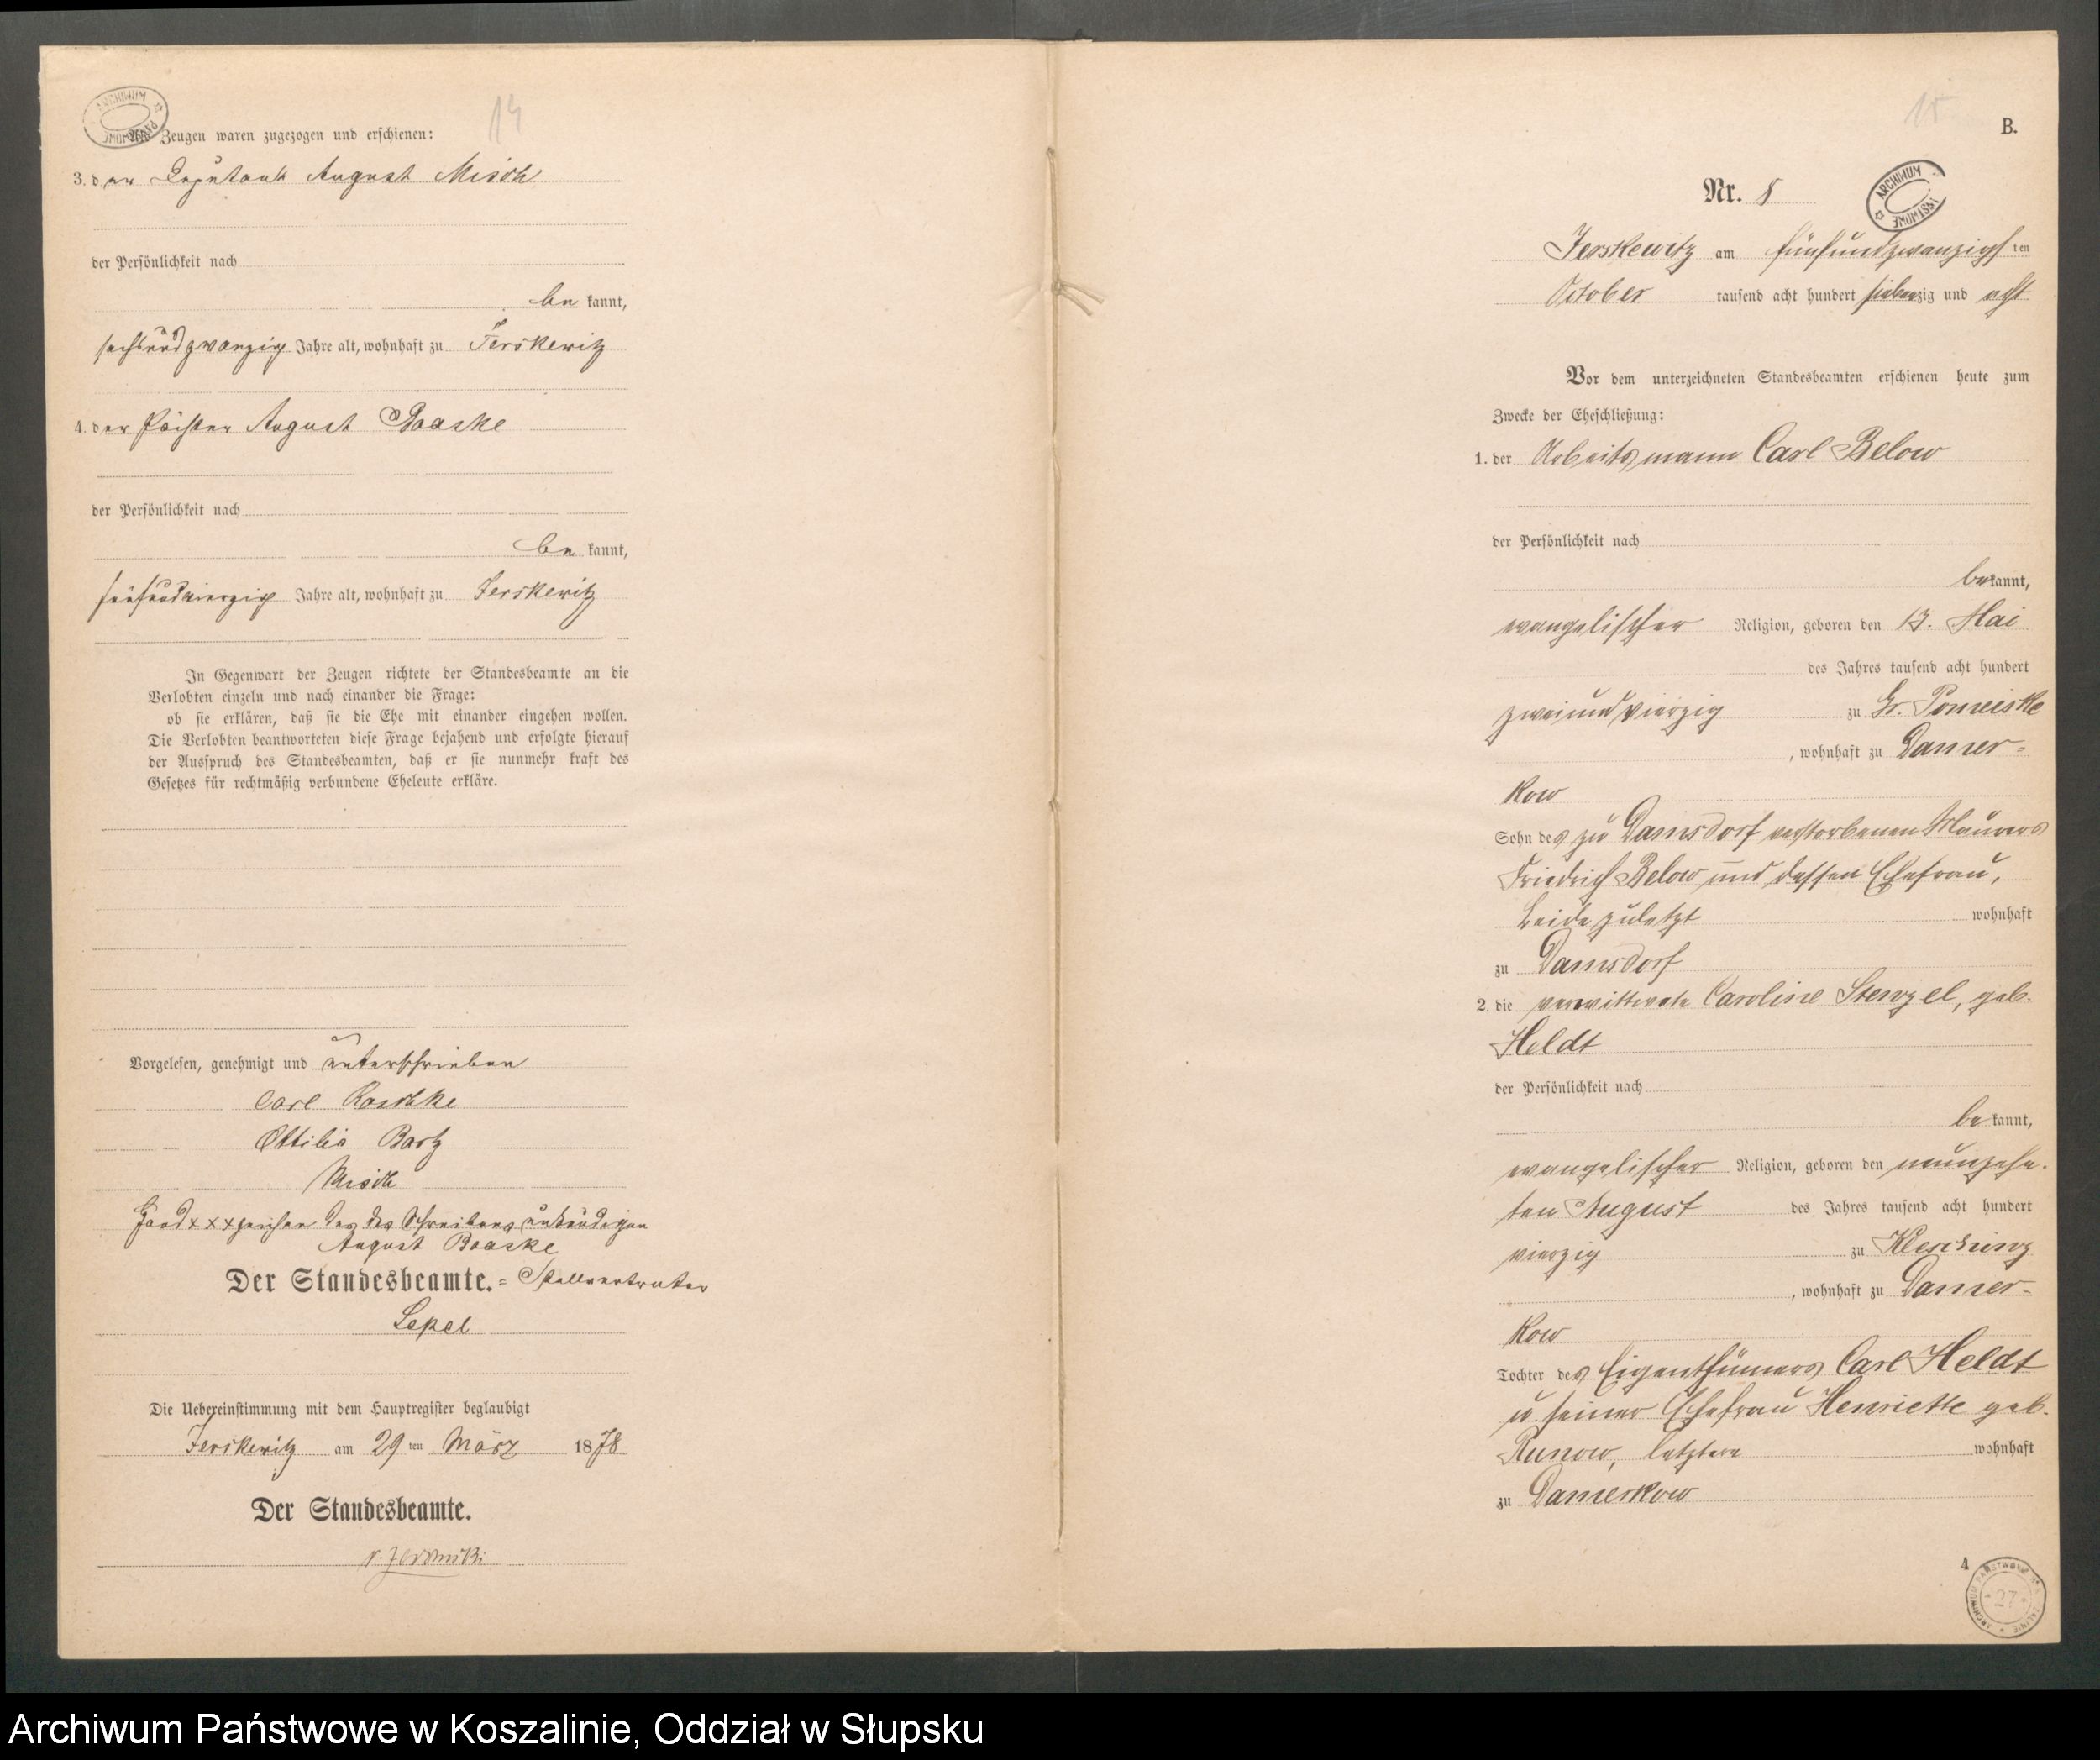 14
ARCHIWUM
Als Zeugen waren zugezogen und erschienen:
3. der Deputant August Misch
der Persönlichkeit nach
be kannt,
sechsundzwanzig Jahre alt, wohnhaft zu Jerskewitz
4. der August Baaske
der Persönlichkeit nach
be kannt,
fünfundvierzig Jahre alt, wohnhaft zu Jerskewitz
In Gegenwart der Zeugen richtete der Standesbeamte an die
Verlobten einzeln und nach einander die Frage:
ob sie erklären, daß sie die Ehe mit einander eingehen wollen.
Die Verlobten beantworteten diese Frage bejahend und erfolgte hierauf
der Ausspruch des Standesbeamten, daß er sie nunmehr kraft des
Gesetzes für rechtmäßig verbundene Eheleute erkläre.
Vorgelesen, genehmigt und unterschrieben
Carl Raschke
Ottilie Bartz
Misch
Hand x x x zeichen des des Schreibens unkundigen
August Baaske
Der Standesbeamte. = Stellvertreter
Lepel
Die Uebereinstimmung mit dem Hauptregister beglaubigt
Jerskewitz am 29 ten März 1878
Der Standesbeamte.
15
B.
Nr. 8
ARCHIWUM
Jerskewitz am fünfundzwanzigsten
October tausend acht hundert siebenzig und acht
Vor dem unterzeichneten Standesbeamten erschienen heute zum
Zwecke der Eheschließung:
1. der Arbeitsmann Carl Below
der Persönlichkeit nach
bekannt,
evangelischer Religion, geboren den 13. Mai
des Jahres tausend acht hundert
zweiundvierzig zu Gr. Pomeiske
, wohnhaft zu Damer-
kow
Sohn des zu Damsdorf verstorbenen Maurers
Friedrich Below und dessen Ehefrau,
beide zuletzt wohnhaft
zu Damsdorf
2. die verwittwete Caroline Stenzel, geb.
Heldt
der Persönlichkeit nach
be kannt,
evangelischer Religion, geboren den neunzehn-
ten August des Jahres tausend acht hundert
vierzig zu Kleschinz
, wohnhaft zu Damer-
kow
Tochter des Eigenthümers Carl Heldt
u. seiner Ehefrau Henriette geb.
Runow, letztere wohnhaft
zu Damerkow
4
27
Archiwum Państwowe w Koszalinie, Oddział w Słupsku